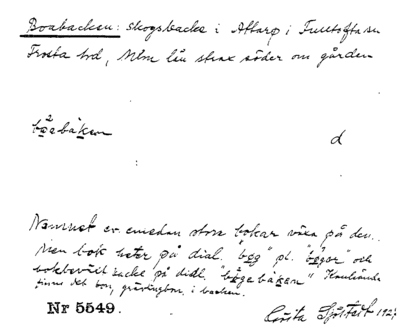 Boabacken: skogsbacke i Attarp i Fulltofta sn
Frosta hd, Mlm län strax söder om gården
bo2gebàken
d
Namnet ev. emedan stora bokar växa på den.
Men bok heter på dial. "bog" pl. "bøgor" och
bokbevuxen backe på dial. "bøgebàken" Kanhända
finns det bon, grävlingbon, i backen.
Nr 5549.
Gösta Sjöstedt 1927